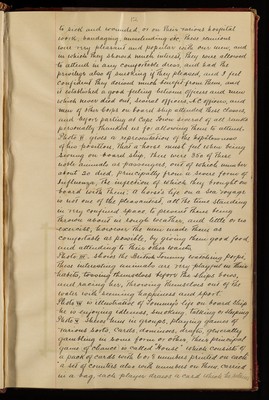 to sick and wounded, or on their various hospital
work, bandaging, ambulancing etc. These seminars
were very pleasant and popular with our men, and
in which they showed much interest, they were allowed
to attend in any comfortable dress, and had the
privilege also of smoking if they pleased, and I feel
confident they derived much benefit from them, and
it established a good feeling between Officers and men
which never died out, several officers, N.C. officers, and
men of other Corps on board ship attended these classes,
and before parting at Cape Town several of all ranks
personally thanked me for allowing them to attend.
Photo G gives a representation of the helplessness
of his position, that a horse must feel when being
swung on board ship, there were 350 of these
noble animals as passengers out of which number
about 20 died, principally from a severe form of
Influenza, the infection of which they brought on
board with them. A horse's life on a sea voyage
is not one of the pleasantest, all the time standing
in very confined space, to prevent them being
thrown about in rough weather, and little or no
exercise, however the men made them as
comfortable as possible, by giving them good food
and attending to their other wants.
Photo H. shows the British Tommy watching porps,
these interesting animals are very playful in their
habits, throwing themselves before the ships bows,
and racing her, throwing themselves out of the
water with seeming happiness and sport.
Photo is illustrative of Tommy's life on board ship
he is enjoying idleness, smoking, talking or sleeping
Photo shows him in groups, playing games of
various sorts, Cards, dominoes, drafts, generally
gambling in some form or other. Their principal
game of chance is called "House" which consists of
a pack of cards with 6 or 8 numbers printed on each
a set of counters also with numbers on them, carried
in a bag, each player draws a card